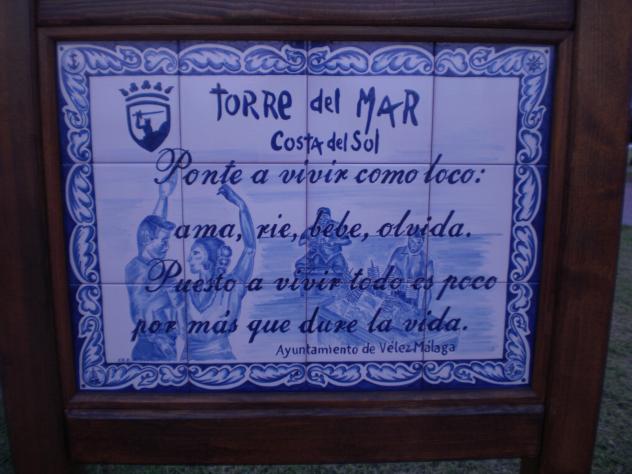 TORRE del MAR
COSTA del SOL
Ponte a vivir como loco:
ama, rie, bebe, olvida.
Puesto a vivir todo es poco
por más que dure la vida.
Ayuntamiento de Vélez Málaga